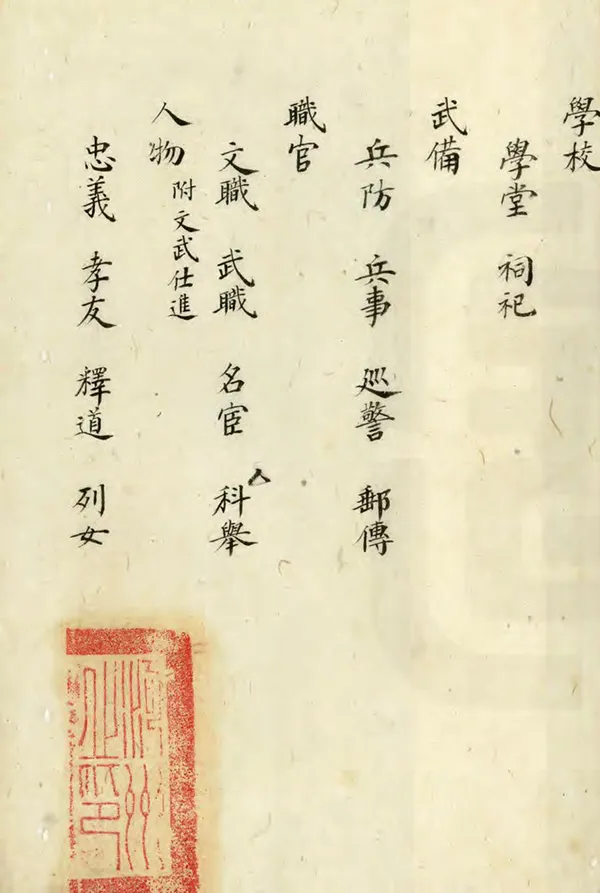 學校
學堂 祠祀
武備
兵防 兵事 巡警 郵傳
職官
文職 武職 名宦 科舉
人物 附文武仕進
忠義 孝友 釋道 列女